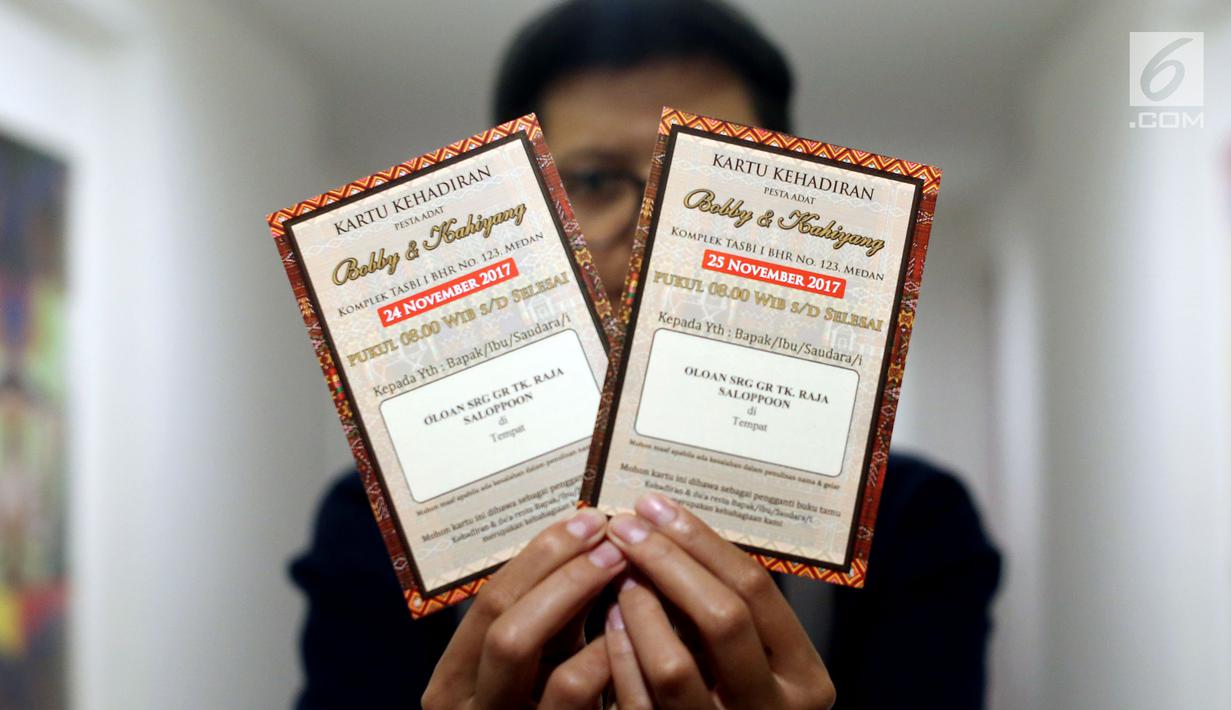 6
.COM
KARTU KEHADIRAN
PESTA ADAT
Bobby & Kahiyang
KOMPLEK TASBI I BHR NO. 123, MEDAN
24 NOVEMBER 2017
PUKUL 08.00 WIB S/D SELESAI
Kepada Yth : Bapak/Ibu/Saudara/i
OLOAN SRG GR TK. RAJA
SALOPPOON
di
Tempat
Mohon maaf apabila ada kesalahan dalam penulisan nama
Mohon kartu ini dibawa sebagai pengganti
Kehadiran & do'a restu Bapak/Ibu/
merupakan kebahagiaan k
KARTU KEHADIRAN
PESTA ADAT
Bobby & Kahiyang
KOMPLEK TASBI I BHR NO. 123, MEDAN
25 NOVEMBER 2017
PUKUL 08.00 WIB S/D SELESAI
Kepada Yth : Bapak/Ibu/Saudara/i
OLOAN SRG GR TK. RAJA
SALOPPOON
di
Tempat
Mohon maaf apabila ada kesalahan dalam penulisan nama & gelar
Mohon kartu ini dibawa sebagai pengganti buku tamu
Kehadiran & do'a restu Bapak/Ibu/Saudara/i
merupakan kebahagiaan kami